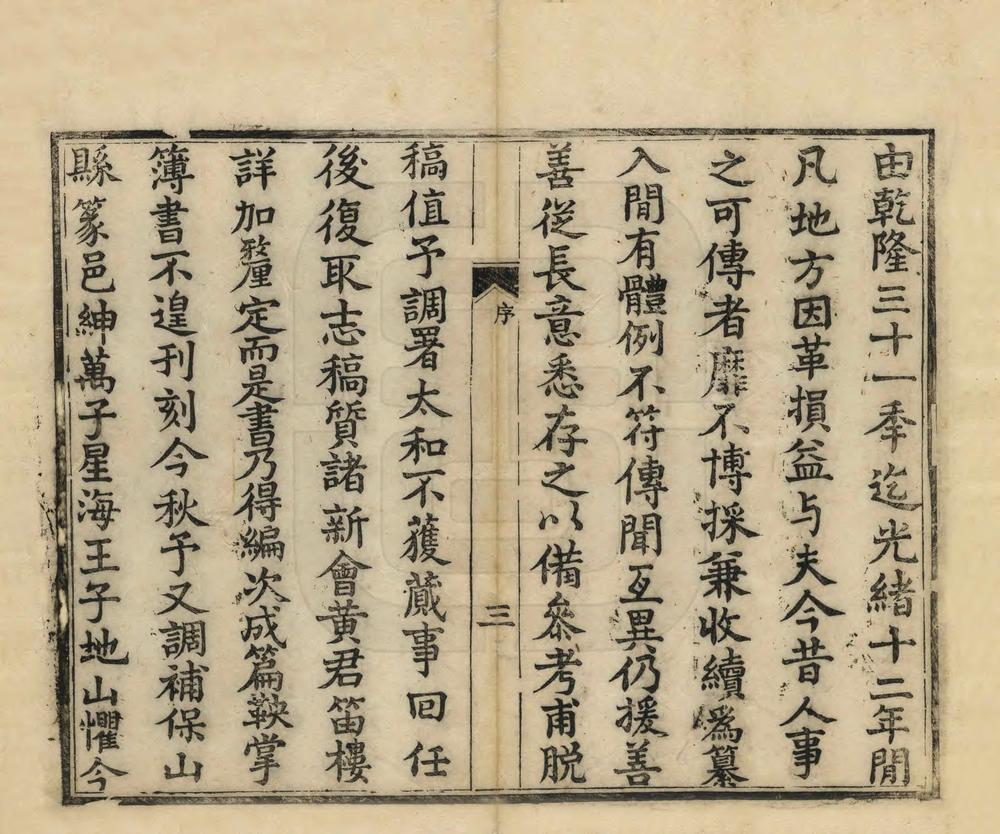 由乾隆三十一秊迄光緒十二年閒
凡地方因革損益与夫今昔人事
之可傳者靡不博採兼收續爲纂
入閒有體例不符傳聞互異仍援善
善從長意悉存之以備叅考甫脱
序
三
稿值予調署太和不獲蕆事回任
後復取志稿質諸新會黄君笛樓
詳加釐定而是書乃得編次成篇鞅掌
簿書不遑刊刻今秋予又調補保山
縣篆邑紳萬子星海王子地山懼今